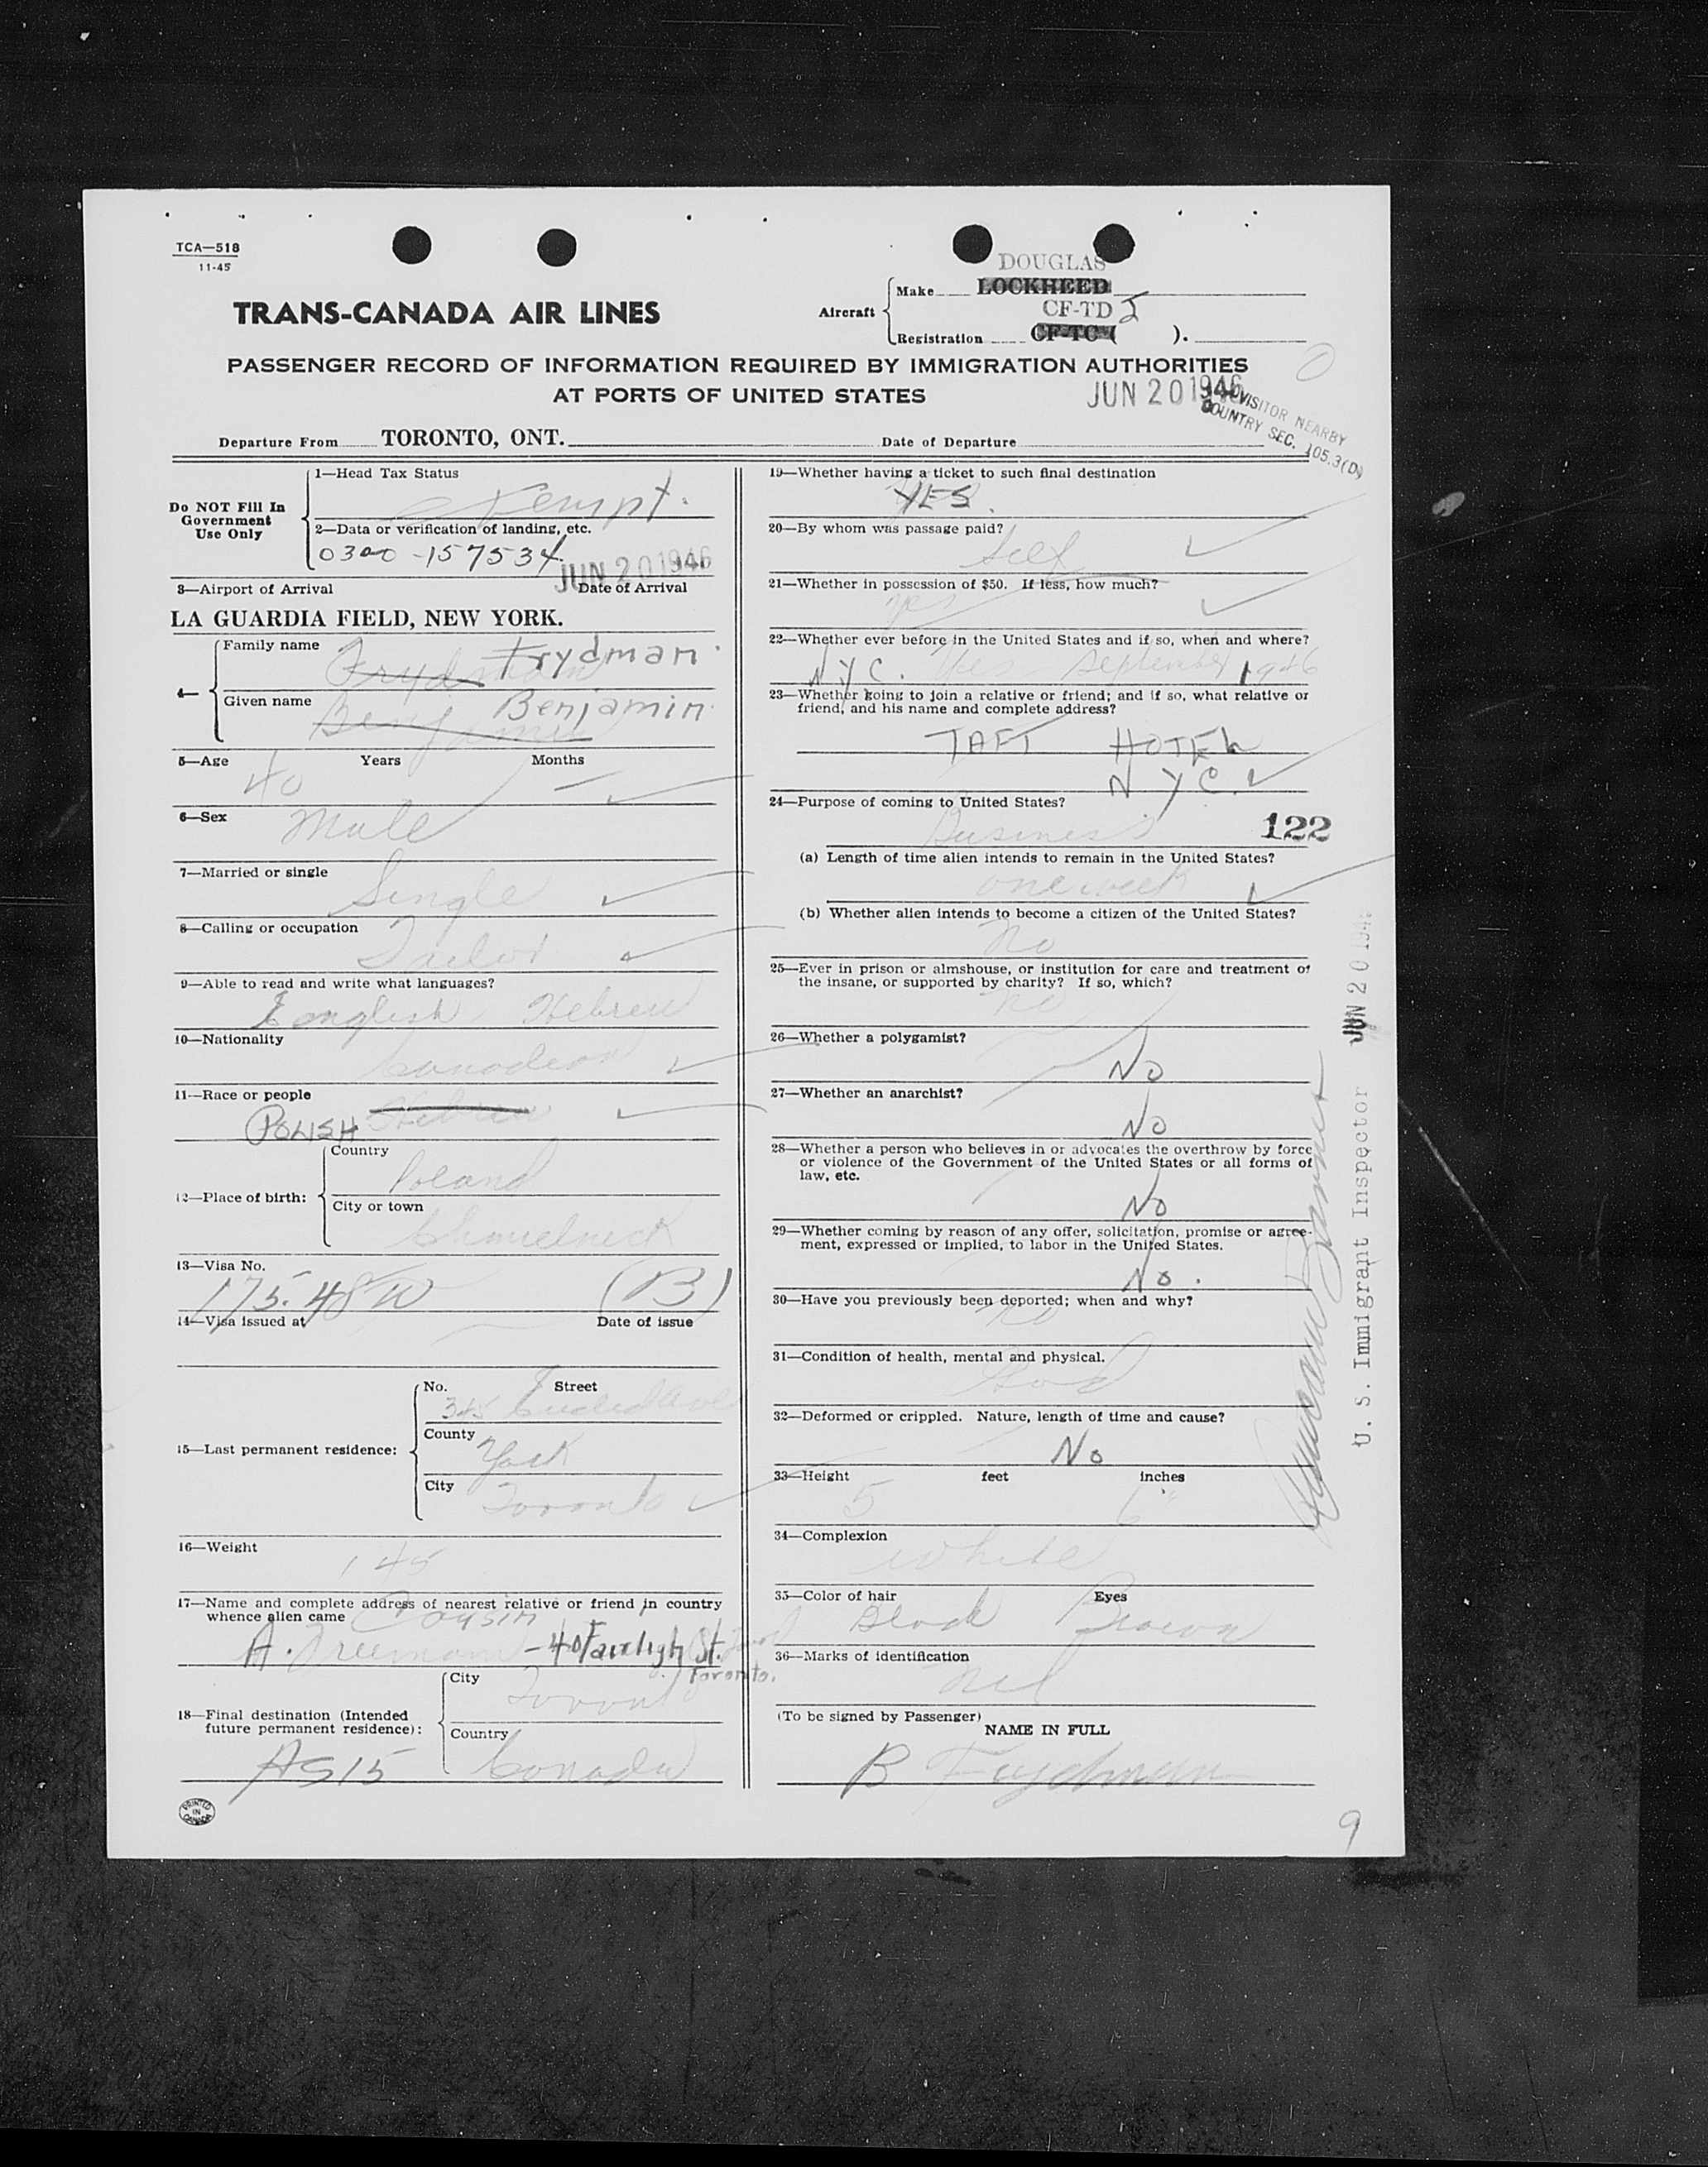 TCA—518
11-45
DOUGLAS
Aircraft
Make LOCKHEED
CF-TD J
Registration CF-TC-( ).
TRANS-CANADA AIR LINES
PASSENGER RECORD OF INFORMATION REQUIRED BY IMMIGRATION AUTHORITIES
AT PORTS OF UNITED STATES
JUN 20 1946
VISITOR NEARBY
COUNTRY SEC. 105.3(D)
Departure From TORONTO, ONT.
Date of Departure
Do NOT Fill In
Government
Use Only
1—Head Tax Status
Exempt.
2—Data or verification of landing, etc.
0300-157534
JUN 20 1946
3—Airport of Arrival
Date of Arrival
LA GUARDIA FIELD, NEW YORK.
4—
Family name
Frydman Frydman
Given name
Benjamin Benjamin
5—Age Years Months
40 —
6—Sex
Male
7—Married or single
Single
8—Calling or occupation
Tailor
9—Able to read and write what languages?
English Hebrew
10—Nationality
Canadian
11—Race or people
POLISH Hebrew
12—Place of birth:
Country
Poland
City or town
Chmielnick
13—Visa No.
175.48W (B)
14—Visa issued at
Date of issue
15—Last permanent residence:
No. Street
345 Euclid Ave
County
York
City
Toronto
16—Weight
145
17—Name and complete address of nearest relative or friend in country
whence alien came Cousin
A. Freeman - 40 Fairleigh St.
Toronto.
18—Final destination (Intended
future permanent residence):
City
Toronto
Country
Canada
AS 15
PRINTED
IN
CANADA
19—Whether having a ticket to such final destination
YES.
20—By whom was passage paid?
Self
21—Whether in possession of $50. If less, how much?
yes
22—Whether ever before in the United States and if so, when and where?
NYC. Yes September 1946
23—Whether going to join a relative or friend; and if so, what relative or
friend, and his name and complete address?
TAFT HOTEL
NYC.
24—Purpose of coming to United States?
Business
122
(a) Length of time alien intends to remain in the United States?
one week
(b) Whether alien intends to become a citizen of the United States?
No
25—Ever in prison or almshouse, or institution for care and treatment of
the insane, or supported by charity? If so, which?
no
26—Whether a polygamist?
No
27—Whether an anarchist?
No
28—Whether a person who believes in or advocates the overthrow by force
or violence of the Government of the United States or all forms of
law, etc.
No
29—Whether coming by reason of any offer, solicitation, promise or agree-
ment, expressed or implied, to labor in the United States.
No.
30—Have you previously been deported; when and why?
no
31—Condition of health, mental and physical.
Good
32—Deformed or crippled. Nature, length of time and cause?
No
33—Height feet inches
5 6"
34—Complexion
white
35—Color of hair Eyes
Black Brown
36—Marks of identification
nil
(To be signed by Passenger)
NAME IN FULL
B Frydman
U. S. Immigrant Inspector JUN 20 194
9